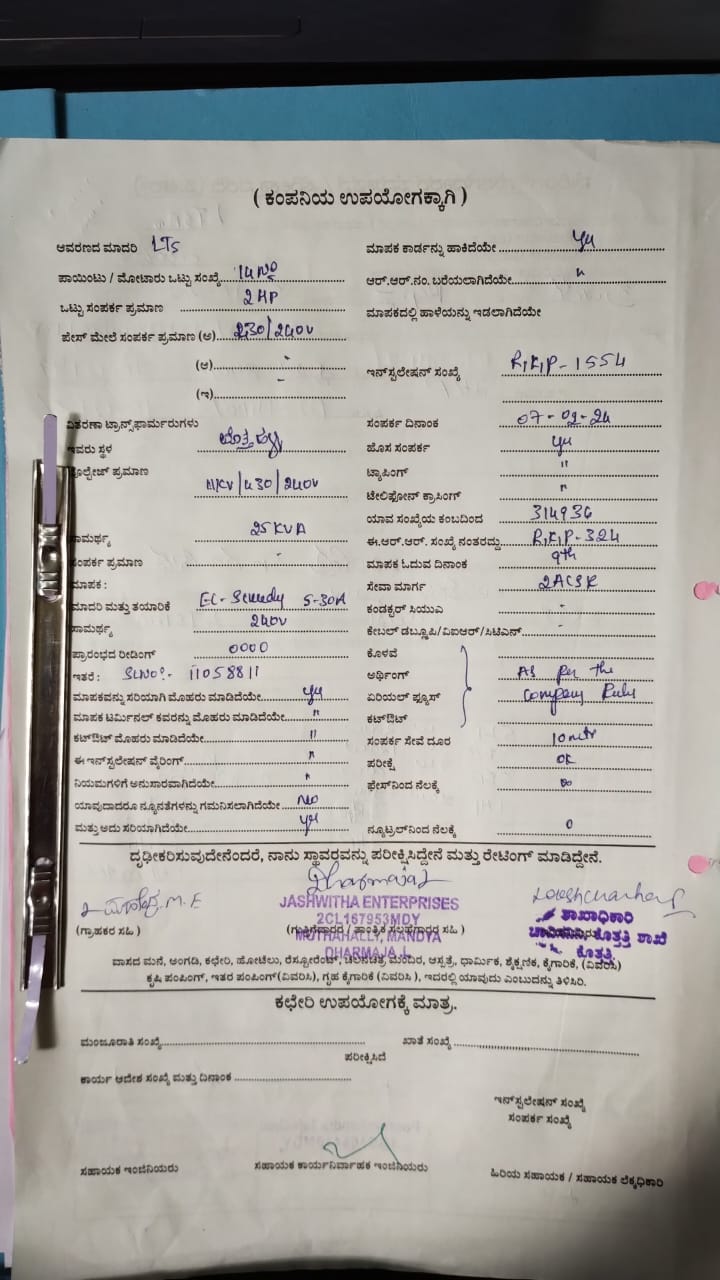 ( ಕಂಪನಿಯ ಉಪಯೋಗಕ್ಕಾಗಿ )
ಆವರಣದ ಮಾದರಿ LTS
ಮಾಪಕ ಕಾರ್ಡನ್ನು ಹಾಕಿದೆಯೇ
ಪಾಯಿಂಟು / ಮೋಟಾರು ಒಟ್ಟು ಸಂಖ್ಯೆ 14 No
ಆರ್.ಆರ್.ನಂ. ಬರೆಯಲಾಗಿದೆಯೇ "
ಒಟ್ಟು ಸಂಪರ್ಕ ಪ್ರಮಾಣ 2 HP
ಮಾಪಕದಲ್ಲಿ ಹಾಳೆಯನ್ನು ಇಡಲಾಗಿದೆಯೇ
ಪೇಸ್ ಮೇಲೆ ಸಂಪರ್ಕ ಪ್ರಮಾಣ (ಅ) 230/240V
(ಆ) -
ಇನ್‌ಸ್ಟಲೇಷನ್ ಸಂಖ್ಯೆ -1554
(ಇ) -
ವಿತರಣಾ ಟ್ರಾನ್ಸ್‌ಫಾರ್ಮರುಗಳು
ಸಂಪರ್ಕ ದಿನಾಂಕ 07-02-24
ಇವರು ಸ್ಥಳ
ಹೊಸ ಸಂಪರ್ಕ
ವೋಲ್ಟೇಜ್ ಪ್ರಮಾಣ 11KV/430/240V
ಟ್ಯಾಪಿಂಗ್ "
ಟೇಲಿಫೋನ್ ಕ್ರಾಸಿಂಗ್ "
ಯಾವ ಸಂಖ್ಯೆಯ ಕಂಬದಿಂದ 314936
ಸಾಮರ್ಥ್ಯ 25 KVA
ಈ.ಆರ್.ಆರ್. ಸಂಖ್ಯೆ ನಂತರದ್ದು -324
ಸಂಪರ್ಕ ಪ್ರಮಾಣ -
ಮಾಪಕ ಓದುವ ದಿನಾಂಕ 9th
ಮಾಪಕ :
ಸೇವಾ ಮಾರ್ಗ 2ACSR
ಮಾದರಿ ಮತ್ತು ತಯಾರಿಕೆ 5-30A
ಕಂಡಕ್ಟರ್ ಸಿಯುಎ -
ಸಾಮರ್ಥ್ಯ 240V
ಕೇಬಲ್ ಡಬ್ಲ್ಯೂಪಿ/ವಿಐಆರ್/ಸಿಟಿಎನ್ -
ಪ್ರಾರಂಭದ ರೀಡಿಂಗ್ 0000
ಕೊಳವೆ
ಇತರೆ : SLNO:- 11058811
ಅರ್ಥಿಂಗ್ As per the
ಮಾಪಕವನ್ನು ಸರಿಯಾಗಿ ಮೊಹರು ಮಾಡಿದೆಯೇ
ಏರಿಯಲ್ ಫ್ಯೂಸ್ Company Rules
ಮಾಪಕ ಟರ್ಮಿನಲ್ ಕವರನ್ನು ಮೊಹರು ಮಾಡಿದೆಯೇ "
ಕಟ್‌ಔಟ್
ಕಟ್‌ಔಟ್ ಮೊಹರು ಮಾಡಿದೆಯೇ "
ಸಂಪರ್ಕ ಸೇವೆ ದೂರ 10 mtr
ಈ ಇನ್‌ಸ್ಟಲೇಷನ್ ವೈರಿಂಗ್ "
ಪರೀಕ್ಷೆ OK
ನಿಯಮಗಳಿಗೆ ಅನುಸಾರವಾಗಿದೆಯೇ "
ಫೇಸ್‌ನಿಂದ ನೆಲಕ್ಕೆ
ಯಾವುದಾದರೂ ನ್ಯೂನತೆಗಳನ್ನು ಗಮನಿಸಲಾಗಿದೆಯೇ No
ಮತ್ತು ಅದು ಸರಿಯಾಗಿದೆಯೇ
ನ್ಯೂಟ್ರಲ್‌ನಿಂದ ನೆಲಕ್ಕೆ 0
ದೃಢೀಕರಿಸುವುದೇನೆಂದರೆ, ನಾನು ಸ್ಥಾವರವನ್ನು ಪರೀಕ್ಷಿಸಿದ್ದೇನೆ ಮತ್ತು ರೇಟಿಂಗ್ ಮಾಡಿದ್ದೇನೆ.
JASHWITHA ENTERPRISES
2CL167953MDY
MUTHAHALLY, MANDYA
DHARMAJA
ಶಾಖಾಧಿಕಾರಿ
ಚಾವಿಸನಿನಿ, ಕೊತ್ತತ್ತಿ ಶಾಖೆ
ಕೊತ್ತತ್ತಿ
(ಗ್ರಾಹಕರ ಸಹಿ )
(ಗುತ್ತಿಗೆದಾರರ / ತಾಂತ್ರಿಕ ಸಲಹೆಗಾರರ ಸಹಿ )
ವಾಸದ ಮನೆ, ಅಂಗಡಿ, ಕಛೇರಿ, ಹೋಟೆಲು, ರೆಸ್ಟೋರೆಂಟ್, ಚಲನಚಿತ್ರ ಮಂದಿರ, ಆಸ್ಪತ್ರೆ, ಧಾರ್ಮಿಕ, ಶೈಕ್ಷಣಿಕ, ಕೈಗಾರಿಕೆ, (ವಿವರಿಸಿ)
ಕೃಷಿ ಪಂಪಿಂಗ್, ಇತರ ಪಂಪಿಂಗ್ (ವಿವರಿಸಿ), ಗೃಹ ಕೈಗಾರಿಕೆ (ವಿವರಿಸಿ ), ಇದರಲ್ಲಿ ಯಾವುದು ಎಂಬುದನ್ನು ತಿಳಿಸಿರಿ.
ಕಛೇರಿ ಉಪಯೋಗಕ್ಕೆ ಮಾತ್ರ.
ಮಂಜೂರಾತಿ ಸಂಖ್ಯೆ
ಖಾತೆ ಸಂಖ್ಯೆ
ಪರೀಕ್ಷಿಸಿದೆ
ಕಾರ್ಯ ಆದೇಶ ಸಂಖ್ಯೆ ಮತ್ತು ದಿನಾಂಕ
ಇನ್‌ಸ್ಟಲೇಷನ್ ಸಂಖ್ಯೆ
ಸಂಪರ್ಕ ಸಂಖ್ಯೆ
ಸಹಾಯಕ ಇಂಜಿನಿಯರು
ಸಹಾಯಕ ಕಾರ್ಯನಿರ್ವಾಹಕ ಇಂಜಿನಿಯರು
ಹಿರಿಯ ಸಹಾಯಕ / ಸಹಾಯಕ ಲೆಕ್ಕಧಿಕಾರಿ